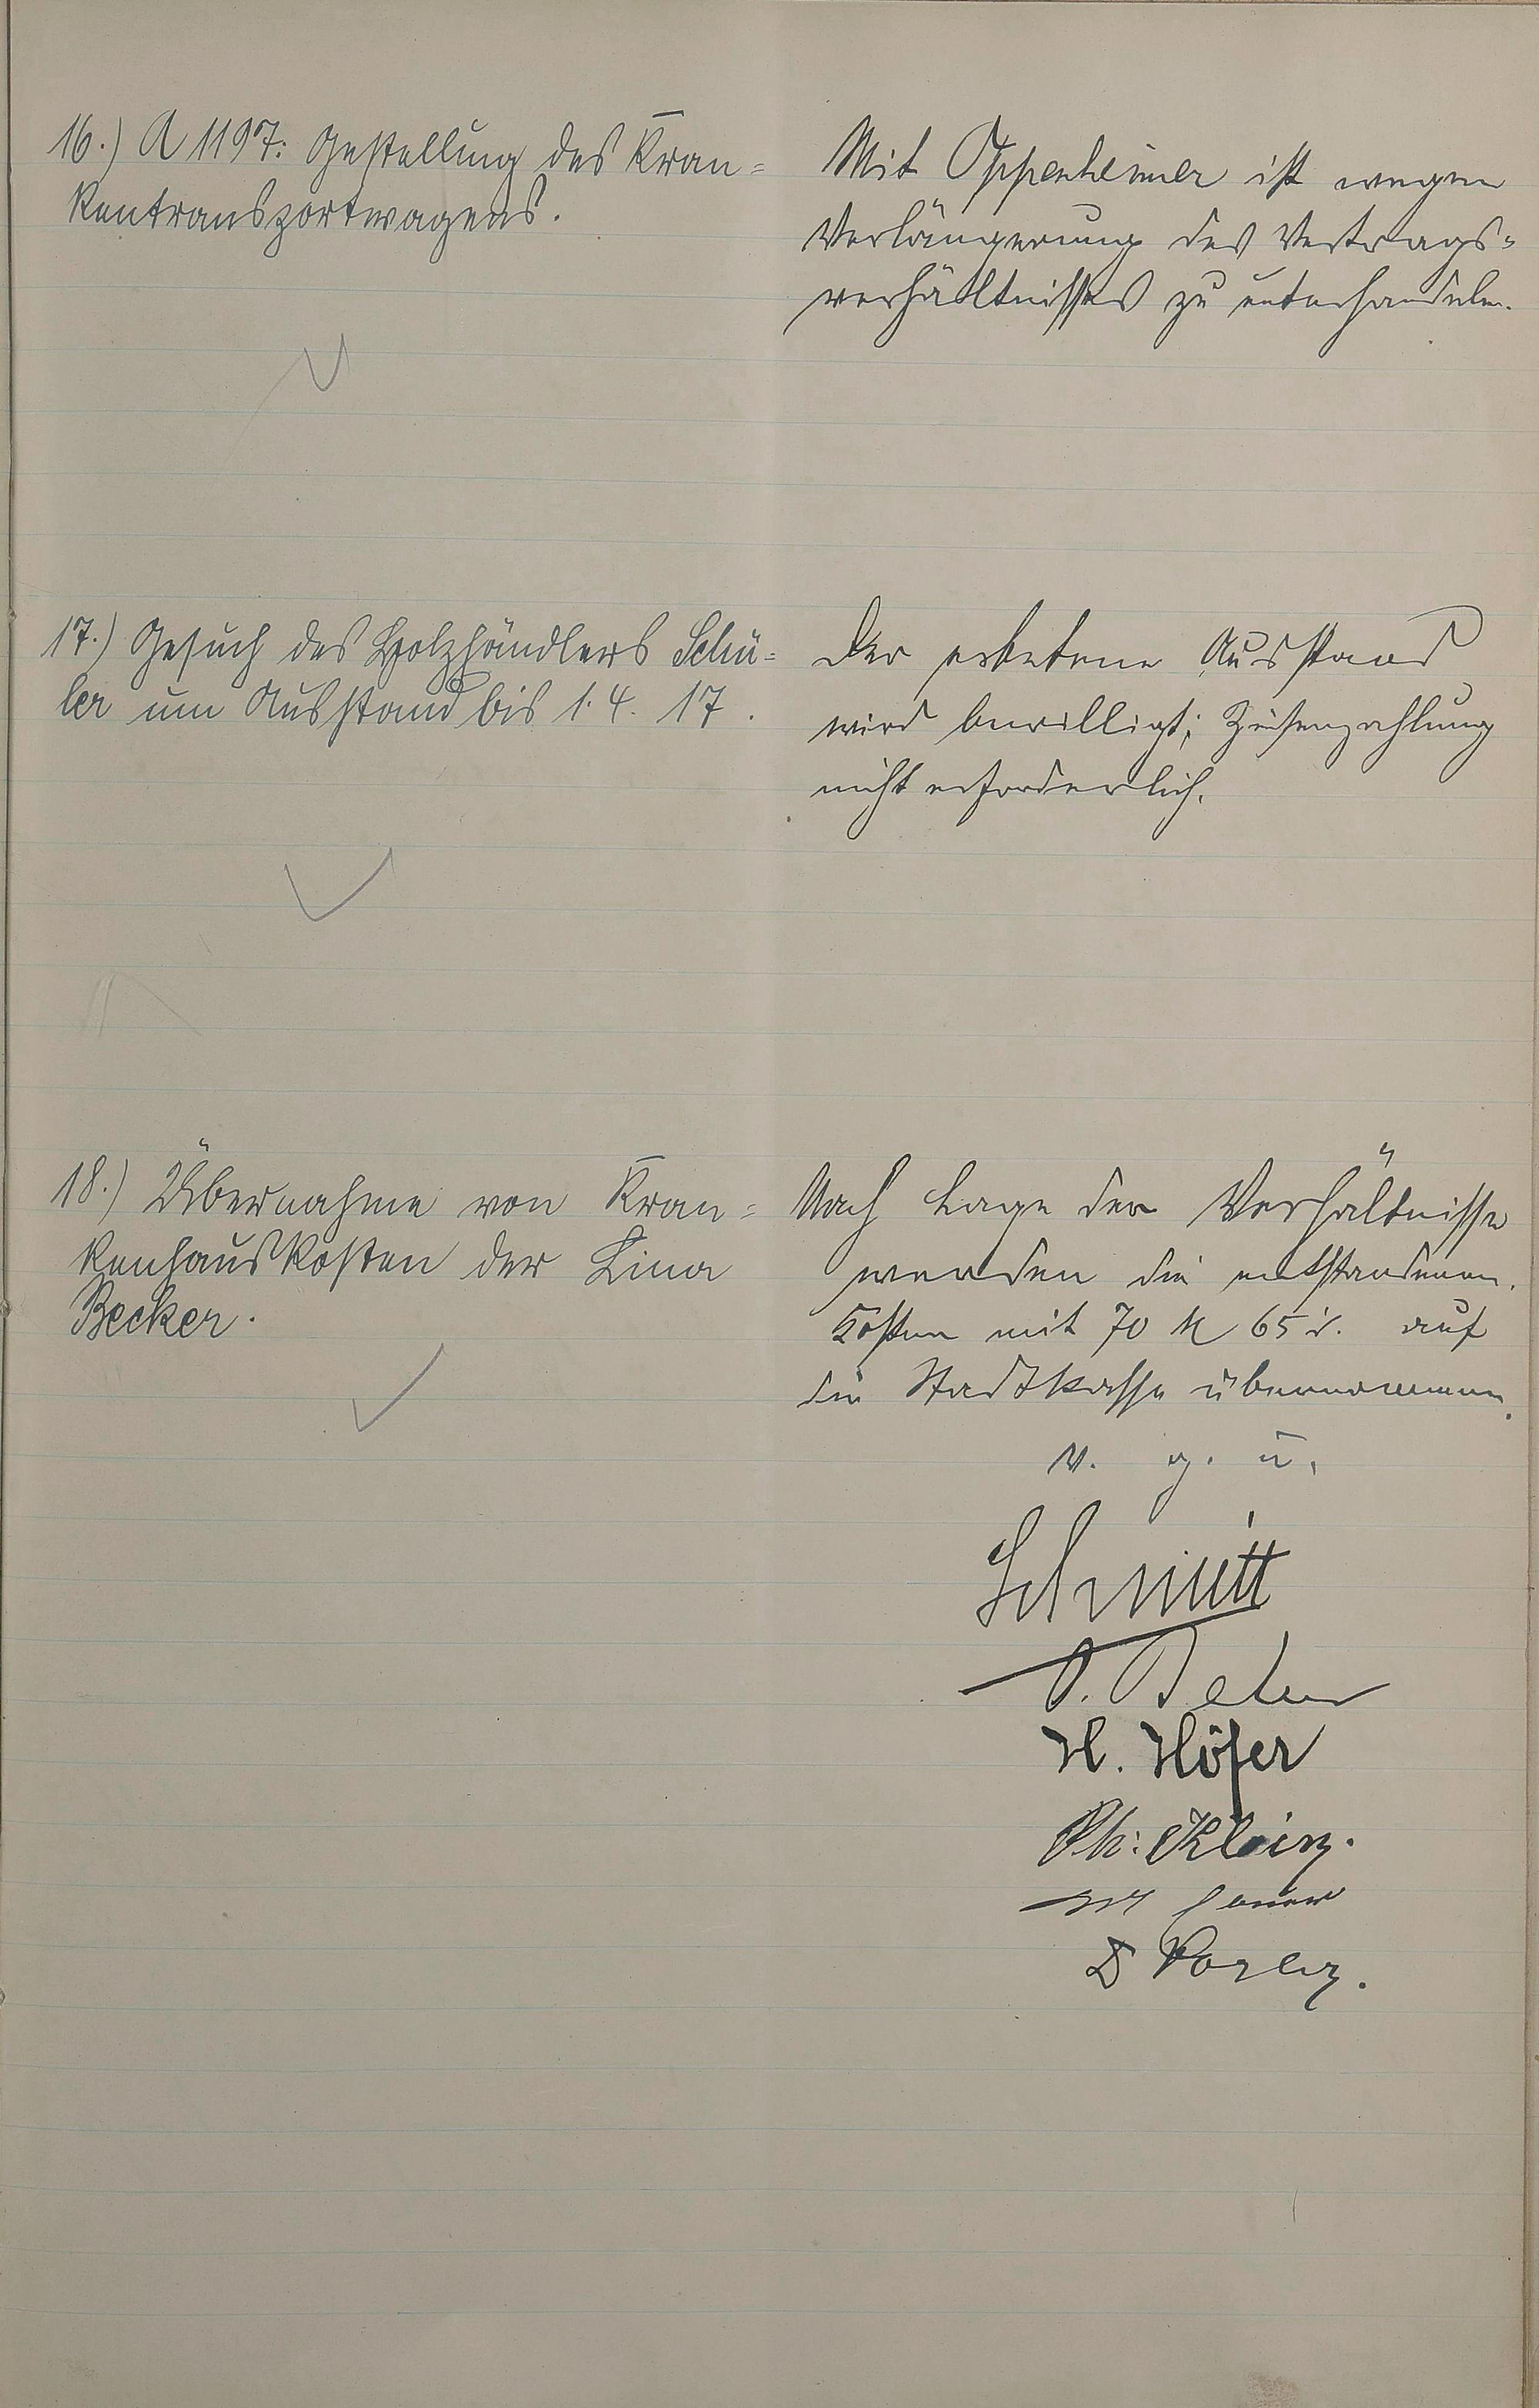 16.) A 1197: Gestellung des Kran=
kentransportwagens.
Mit Oppenheimer ist wegen
Verlängerung des Vertrags=
verhältnisses zu unterhandeln.
17.) Gesuch des Holzhändlers Schü=
ler um Ausstand bis 1. 4. 17.
Der erbetene Ausstand
wird bewilligt; Zinsenzahlung
nicht erforderlich.
18.) Übernahme von Kran=
kenhauskosten der Lina
Becker.
Nach Lage der Verhältnisse
werden die entstandenen
Kosten mit 70 M 65 d. auf
die Stadtkasse übernommen.
v. g. u.
Schmitt
H. Höfer
Ph. Klein.